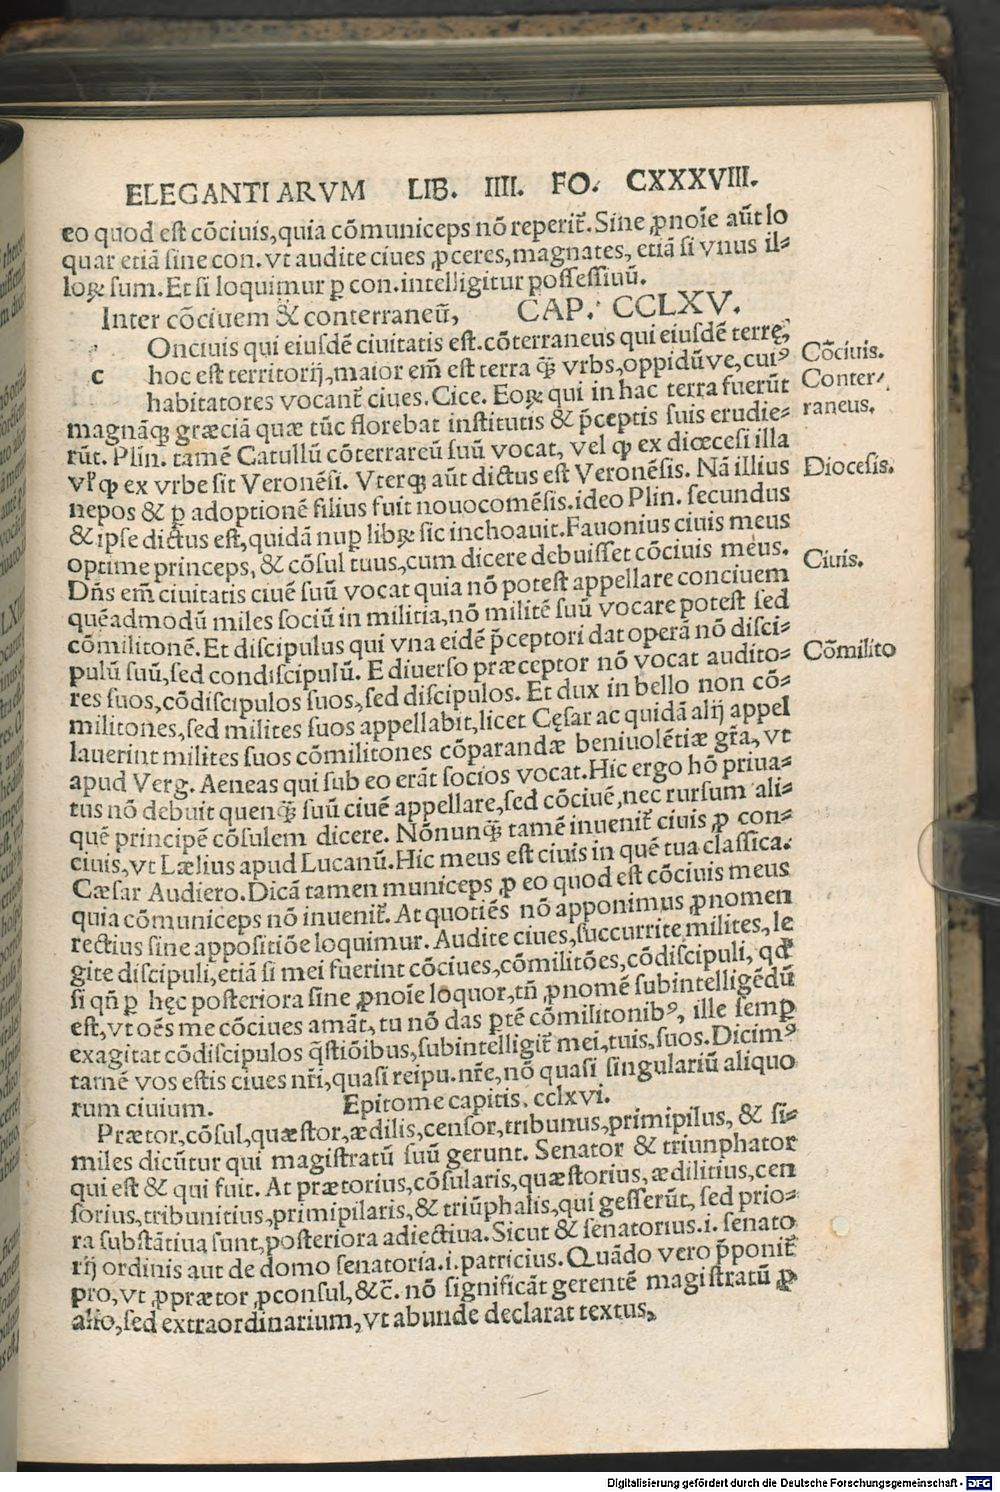 ELEGANTIARVM LIB. IIII. FO. CXXXVIII.
eo quod est cōciuis, quia cōmuniceps nō reperit᷑. Sine ꝓnoīe aūt lo
quar etiā sine con. vt audite ciues ꝓceres, magnates, etiā si vnus il⸗
loꝝ sum. Et si loquimur ꝑ con. intelligitur possessiuū.
Inter cōciuem & conterraneū, CAP. CCLXV.
c Onciuis qui eiusdē ciuitatis est. cōterraneus qui eiusdē terrę,
hoc est territorij, maior em̄ est terra q̄ꝫ vrbs, oppidūve, cuiꝰ
habitatores vocant᷑ ciues. Cice. Eoꝝ qui in hac terra fuerūt
magnāqꝫ græciā quæ tūc florebat institutis & p̄ceptis suis erudie⸗
rūt. Plin. tamē Catullū cōterrareū suū vocat, vel ꝙ ex diœcesi illa
vľ ꝙ ex vrbe sit Veronēsi. Vterqꝫ aūt dictus est Veronēsis. Nā illius
nepos & ꝑ adoptionē filius fuit nouocomēsis. ideo Plin. secundus
& ipse dictus est, quidā nuꝑ libꝝ sic inchoauit. Fauonius ciuis meus
optime princeps, & cōsul tuus, cum dicere debuisset cōciuis meus.
Dn̄s em̄ ciuitatis ciuē suū vocat quia nō potest appellare conciuem
quēadmodū miles sociū in militia, nō militē suū vocare potest sed
cōmilitonē. Et discipulus qui vna eidē p̄ceptori dat operā nō disci⸗
pulū suū, sed condiscipulū. E diuerso præceptor nō vocat audito⸗
res suos, cōdiscipulos suos, sed discipulos. Et dux in bello non cō⸗
militones, sed milites suos appellabit, licet Cęsar ac quidā alij appel
lauerint milites suos cōmilitones cōparandæ beniuolētiæ gr̄a, vt
apud Verg. Aeneas qui sub eo erāt socios vocat. Hic ergo hō priua⸗
tus nō debuit quenq̄ꝫ suū ciuē appellare, sed cōciuē, nec rursum ali⸗
quē principē cōsulem dicere. Nōnunq̄ꝫ tamē inuenit᷑ ciuis ꝓ con⸗
ciuis, vt Lælius apud Lucanū. Hic meus est ciuis in quē tua classica.
Cæsar Audiero. Dicā tamen municeps ꝓ eo quod est cōciuis meus
quia cōmuniceps nō inuenit᷑. At quotiēs nō apponimus ꝓnomen
rectius sine appositiōe loquimur. Audite ciues, succurrite milites, le
gite discipuli, etiā si mei fuerint cōciues, cōmilitōes, cōdiscipuli, qđ
si qn̄ ꝑ hęc posteriora sine ꝓnoīe loquor, tn̄ ꝓnomē subintelligēdū
est, vt oēs me cōciues amāt, tu nō das ꝑtē cōmilitonibꝰ, ille semꝑ
exagitat cōdiscipulos q̄stiōibus, subintelligit᷑ mei, tuis, suos. Dicimꝰ
tamē vos estis ciues nr̄i, quasi reipu. nr̄e, nō quasi singulariū aliquo
rum ciuium. Epitome capitis. cclxvi.
Prætor, cōsul, quæstor, ædilis, censor, tribunus, primipilus, & si⸗
miles dicūtur qui magistratū suū gerunt. Senator & triunphator
qui est & qui fuit. At prætorius, cōsularis, quæstorius, ædilitius, cen
sorius, tribunitius, primipilaris, & triūphalis, qui gesserūt, sed prio⸗
ra substātiua sunt, posteriora adiectiua. Sicut & senatorius. i. senato
rij ordinis aut de domo senatoria. i. patricius. Quādo vero p̄ponit᷑
pro, vt ꝓprætor ꝓconsul, &c̄. nō significāt gerentē magistratū ꝓ
alio, sed extraordinarium, vt abunde declarat textus.
Cōciuis.
Conter⸗
raneus.
Diocesis.
Ciuis.
Cōmilito
Digitalisierung gefördert durch die Deutsche Forschungsgemeinschaft - DFG